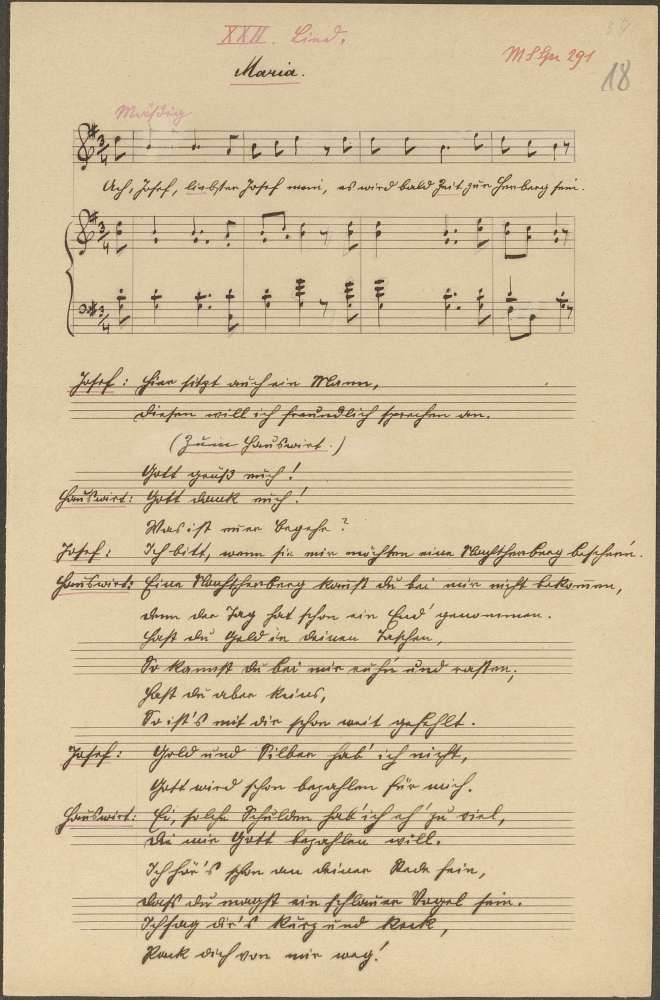 XXII. Lied.
MS Gr 291
18
Maria.
Mäßig
Ach, Josef, liebster Josef mein, es wird bald Zeit zur Herberg sein.
Josef: Hier sitzt auch ein Mann,
Diesen will ich freundlich sprechen an.
(Zum Hauswirt.)
Gott grüß euch!
Hauswirt: Gott dank euch!
Was ist euer Begehr?
Josef: Ich bitt, wenn sie mir möchten eine Nachtherberg bescher'n.
Hauswirt: Eine Nachtherberg kannst du bei mir nicht bekommen,
denn der Tag hat schon ein End' genommen.
Hast du Geld in deinen Taschen,
So kannst du bei mir ruh'n und rasten;
Hast du aber keins,
So ist's mit dir schon weit gefehlt.
Josef: Gold und Silber hab' ich nicht,
Gott wird schon bezahlen für mich.
Hauswirt: Ei, solche Schulden hab' ich eh' zu viel,
Die mir Gott bezahlen will.
Ich hör's schon an deiner Rede fein,
Dass du magst ein schlauer Vogel sein.
Ich sag dir's kurz und keck,
Pack dich von mir weg!